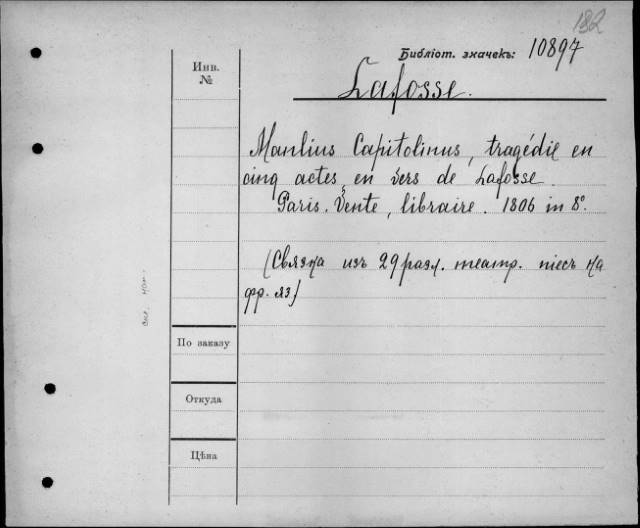 182
Библіот. значекъ: 10897
Инв.
№
Lafosse.
Manlius Capitolinus, tragédie en
cinq actes, en vers de Lafosse.
Paris. Vente, libraire. 1806 in 8º.
(Связка изъ 29 разл. театр. піесъ на
фр. яз)
По заказу
Откуда
Цѣна